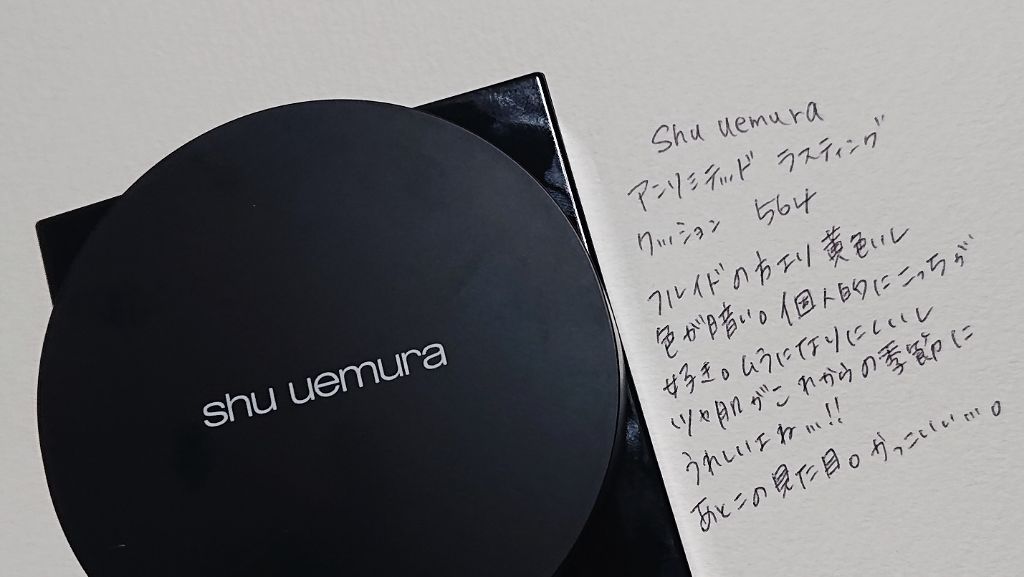 shu uemura
shu uemura
アンリミテッド ラスティング
クッション 564
フルイドの方より黄色いし
色が暗い。個人的にこっちが
好き。ムラになりにくいし
ツヤ肌がこれからの季節に
うれしいよね…!!
あとこの見た目。かっこいい…。